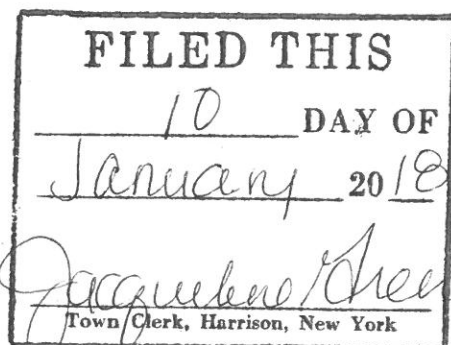 FILED THIS
10 DAY OF
January 2018
Jacqueline Greer
Town Clerk, Harrison, New York